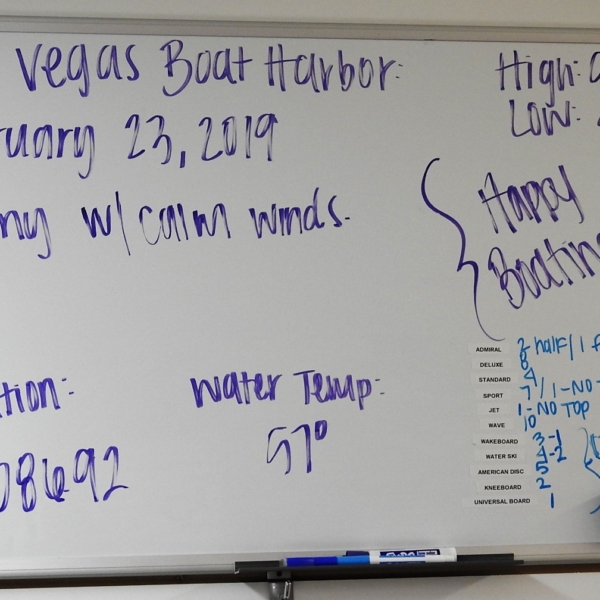 Vegas Boat Harbor:
uary 23, 2019
ny w/ calm winds.
High:
Low:
Happy
Boating
ADMIRAL 2 half / 1 f
DELUXE 8
STANDARD 4
SPORT 7 / 1-NO
JET 1-NO TOP
WAVE 10
WAKEBOARD 3-1
WATER SKI 4-2
AMERICAN DISC 5
KNEEBOARD 2
UNIVERSAL BOARD 1
tion:
08692
Water Temp:
57°
EXPO